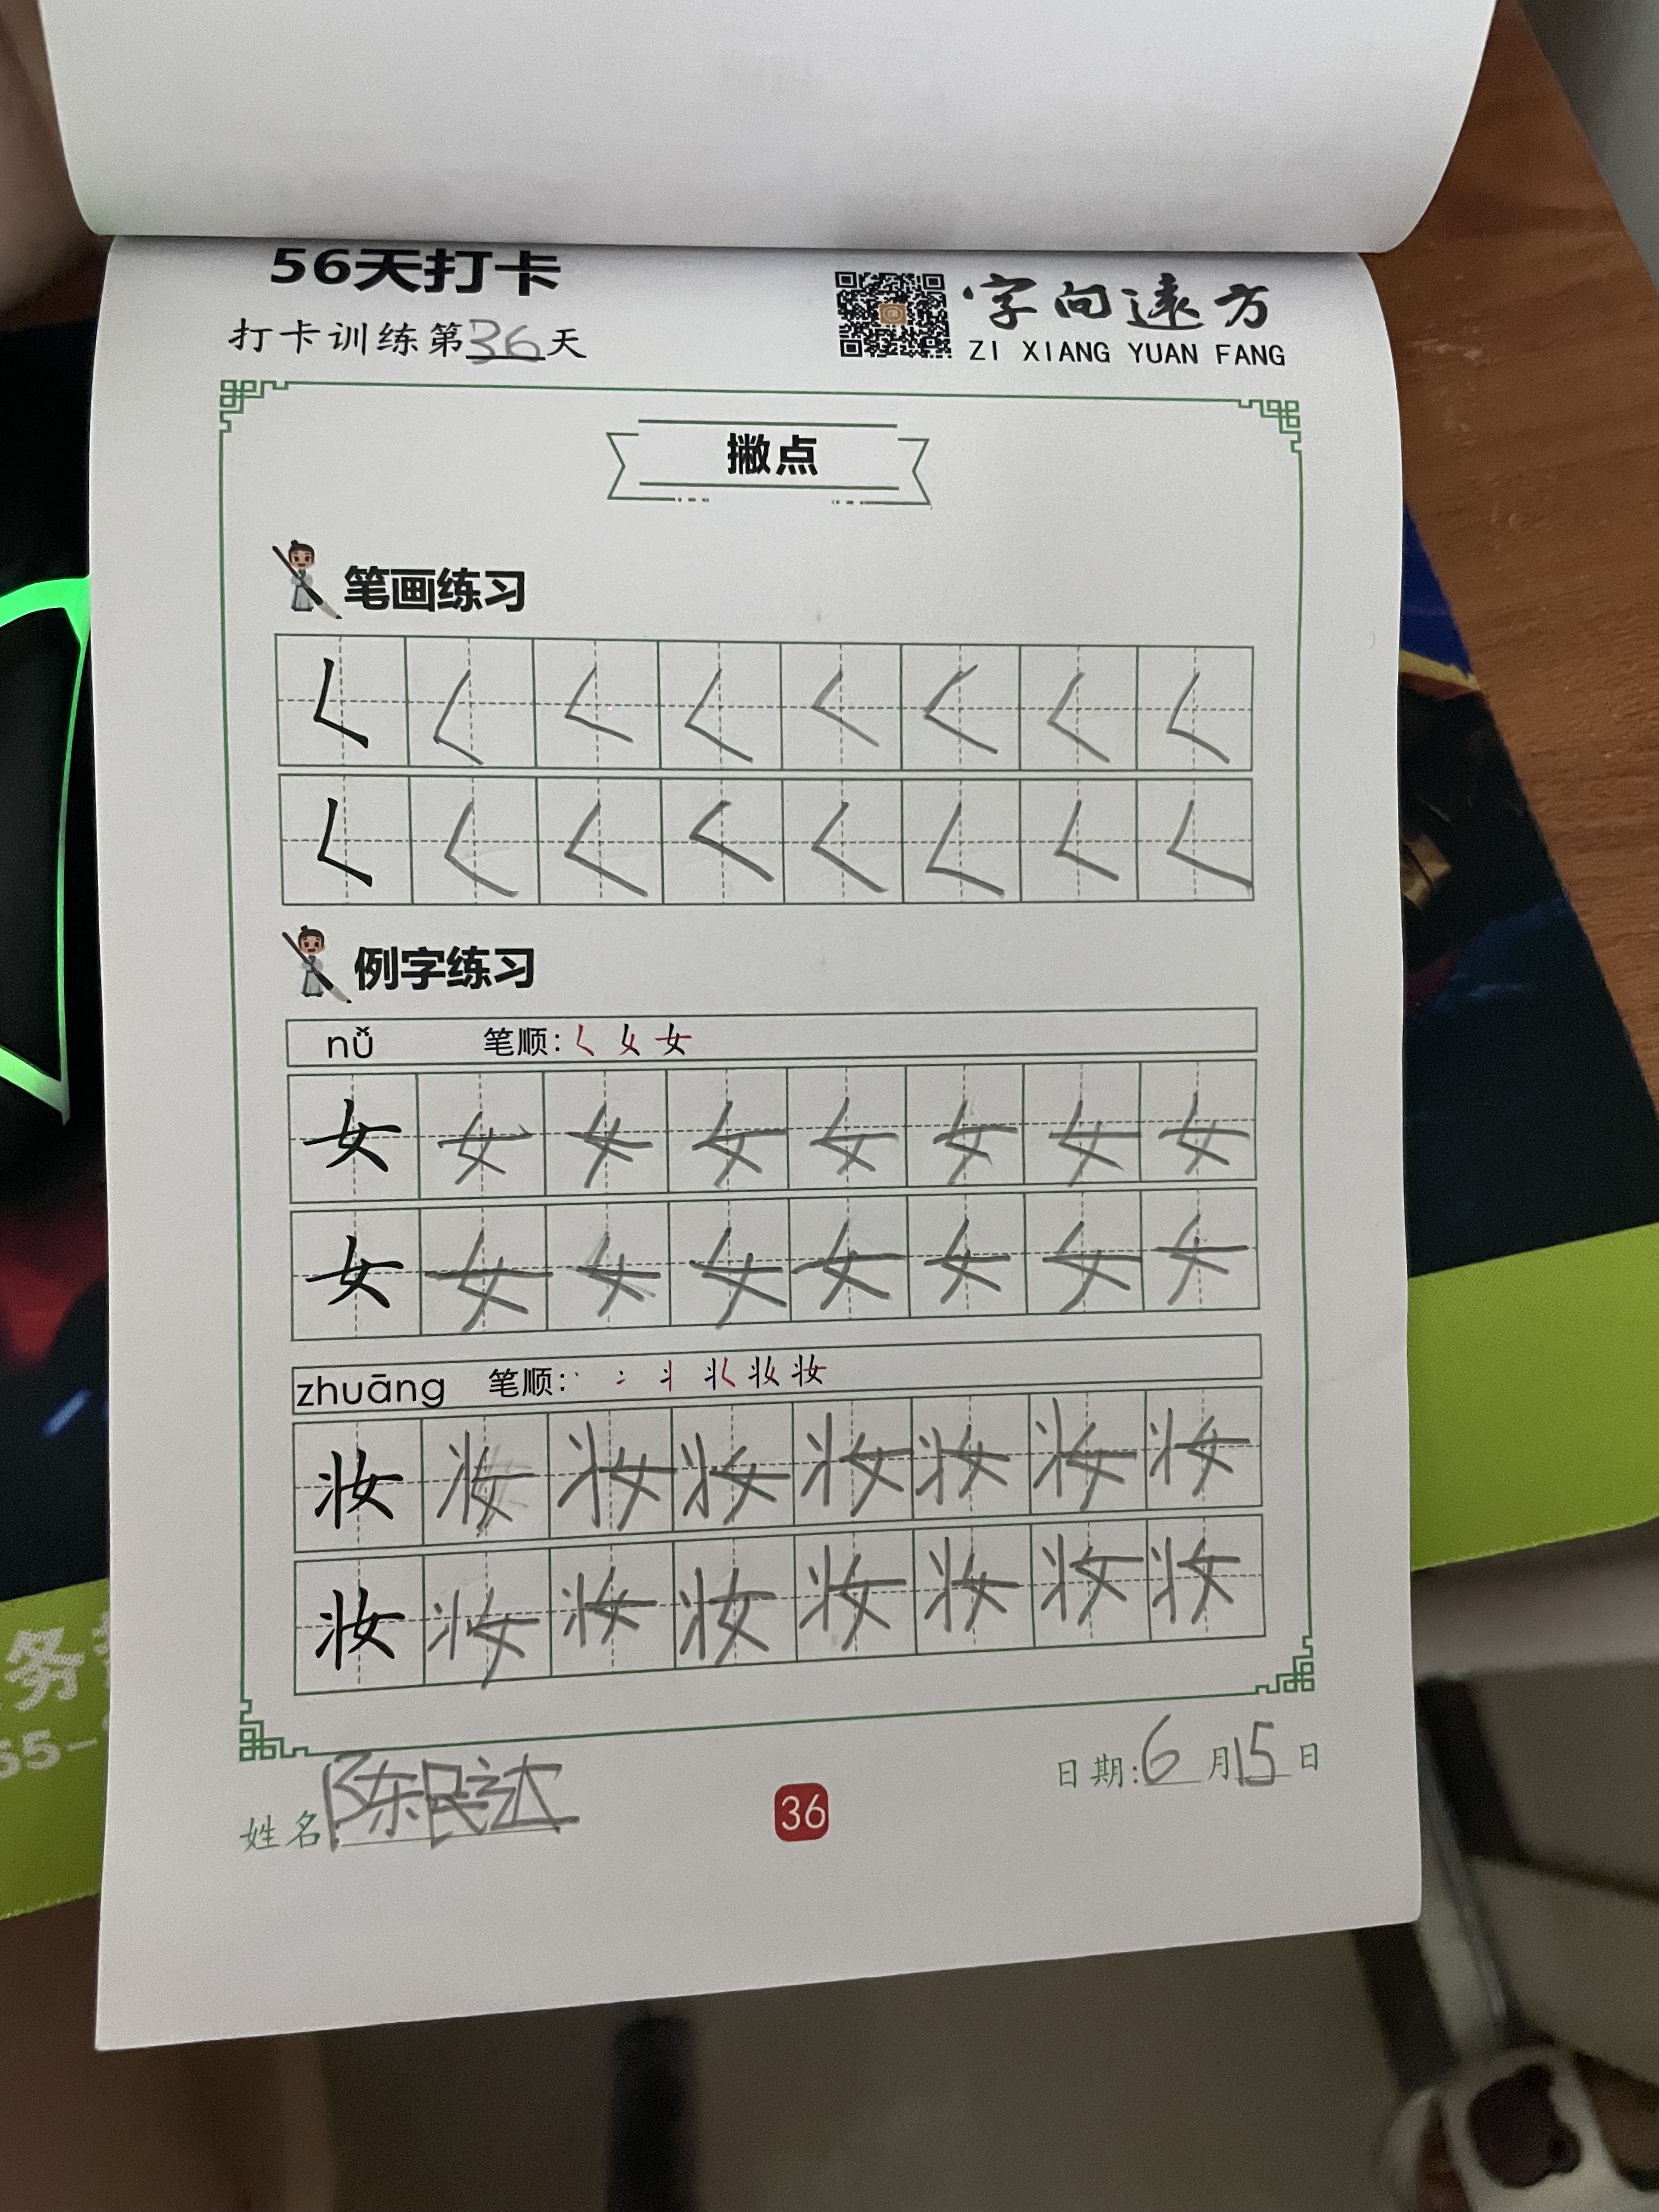 56天打卡
打卡训练第36天
字向远方
ZI XIANG YUAN FANG
撇点
笔画练习
𡿨 𡿨 𡿨 𡿨 𡿨 𡿨 𡿨 𡿨
𡿨 𡿨 𡿨 𡿨 𡿨 𡿨 𡿨 𡿨
例字练习
nǚ 笔顺:
女 女 女 女 女 女 女 女
女 女 女 女 女 女 女 女
zhuāng 笔顺:
妆 妆 妆 妆 妆 妆 妆 妆
妆 妆 妆 妆 妆 妆 妆 妆
姓名:陈民达
36
日期:6月15日
务
55-